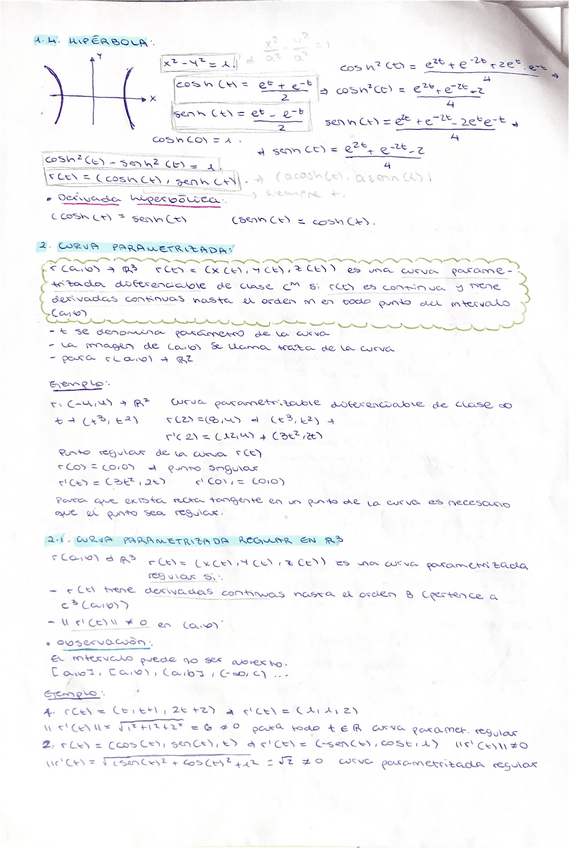 1.4. HIPÉRBOLA:
x² - y² = 1. ⇒ x²/a² - y²/a² = 1
cosh²(t) = (e^2t + e^-2t + 2e^t·e^-t)/4 ⇒
cosh(t) = (e^t + e^-t)/2 ⇒ cosh²(t) = (e^2t + e^-2t + 2)/4
senh(t) = (e^t - e^-t)/2 senh(t) = (e^2t + e^-2t - 2e^t e^-t)/4 ⇒
cosh(0) = 1. ⇒ senh(t) = (e^2t + e^-2t - 2)/4
cosh²(t) - senh²(t) = 1.
r(t) = (cosh(t), senh(t)). ⇒ (a cosh(t), a senh(t))
siempre +.
• Derivada hiperbólica:
(cosh(t) = senh(t) (senh(t) = cosh(t).
2. CURVA PARAMETRIZADA:
r(a,b) → R³ r(t) = (x(t), y(t), z(t)) es una curva parame-
trizada diferenciable de clase C^M si r(t) es continua y tiene
derivadas continuas hasta el orden M en todo punto del intervalo
(a,b)
- t se denomina parámetro de la curva
- La imagen de (a,b) se llama traza de la curva
- para r(a,b) → R²
Ejemplo:
r: (-4,4) → R² curva parametrizable diferenciable de clase ∞
t → (t³, t²) r(2) = (8,4) → (t³, t²) →
r'(2) = (12,4) → (3t², 2t)
Punto regular de la curva r(t)
r(0) = (0,0) → punto singular
r'(t) = (3t², 2t) r'(0) = (0,0)
Para que exista recta tangente en un punto de la curva es necesario
que el punto sea regular.
2.1. CURVA PARAMETRIZADA REGULAR EN R³
r(a,b) → R³ r(t) = (x(t), y(t), z(t)) es una curva parametrizada
regular si:
- r(t) tiene derivadas continuas hasta el orden 3 (pertence a
C³(a,b))
- ||r'(t)|| ≠ 0 en (a,b)
• Observación:
El intervalo puede no ser abierto.
[a,b], [a,b), (a,b], (-∞,c) ...
Ejemplo:
1. r(t) = (t, t+1, 2t+2) → r'(t) = (1, 1, 2)
||r'(t)|| = √1²+1²+2² = 6 ≠ 0 para todo t ∈ R curva paramet. regular
2. r(t) = (cos(t), sen(t), t) → r'(t) = (-sen(t), cost, 1) ||r'(t)|| ≠ 0
||r'(t) = √(sen(t)² + cos(t)² + 1² = √2 ≠ 0 curva parametrizada regular